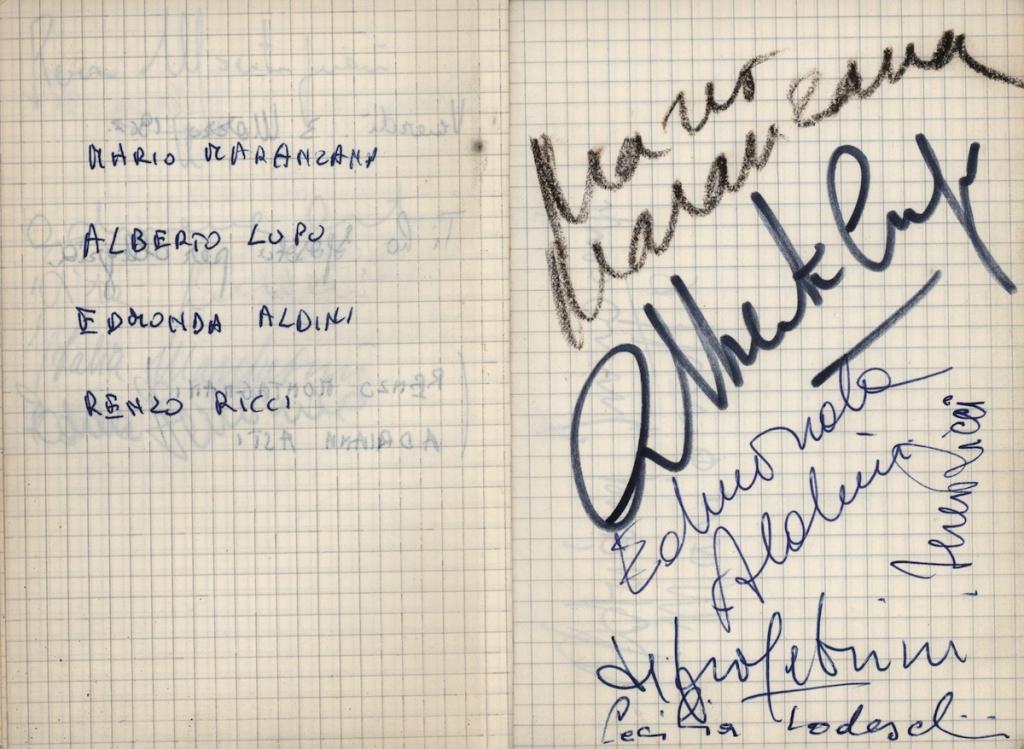 MARIO MARANZANA
ALBERTO LUPO
EDMONDA ALDINI
RENZO RICCI
RENZO MONTAGNANI
ADRIANA ASTI
Mario
Maranzana
Alberto Lupo
Edmonda
Aldini
Renzo Ricci
Cecilia Todeschini